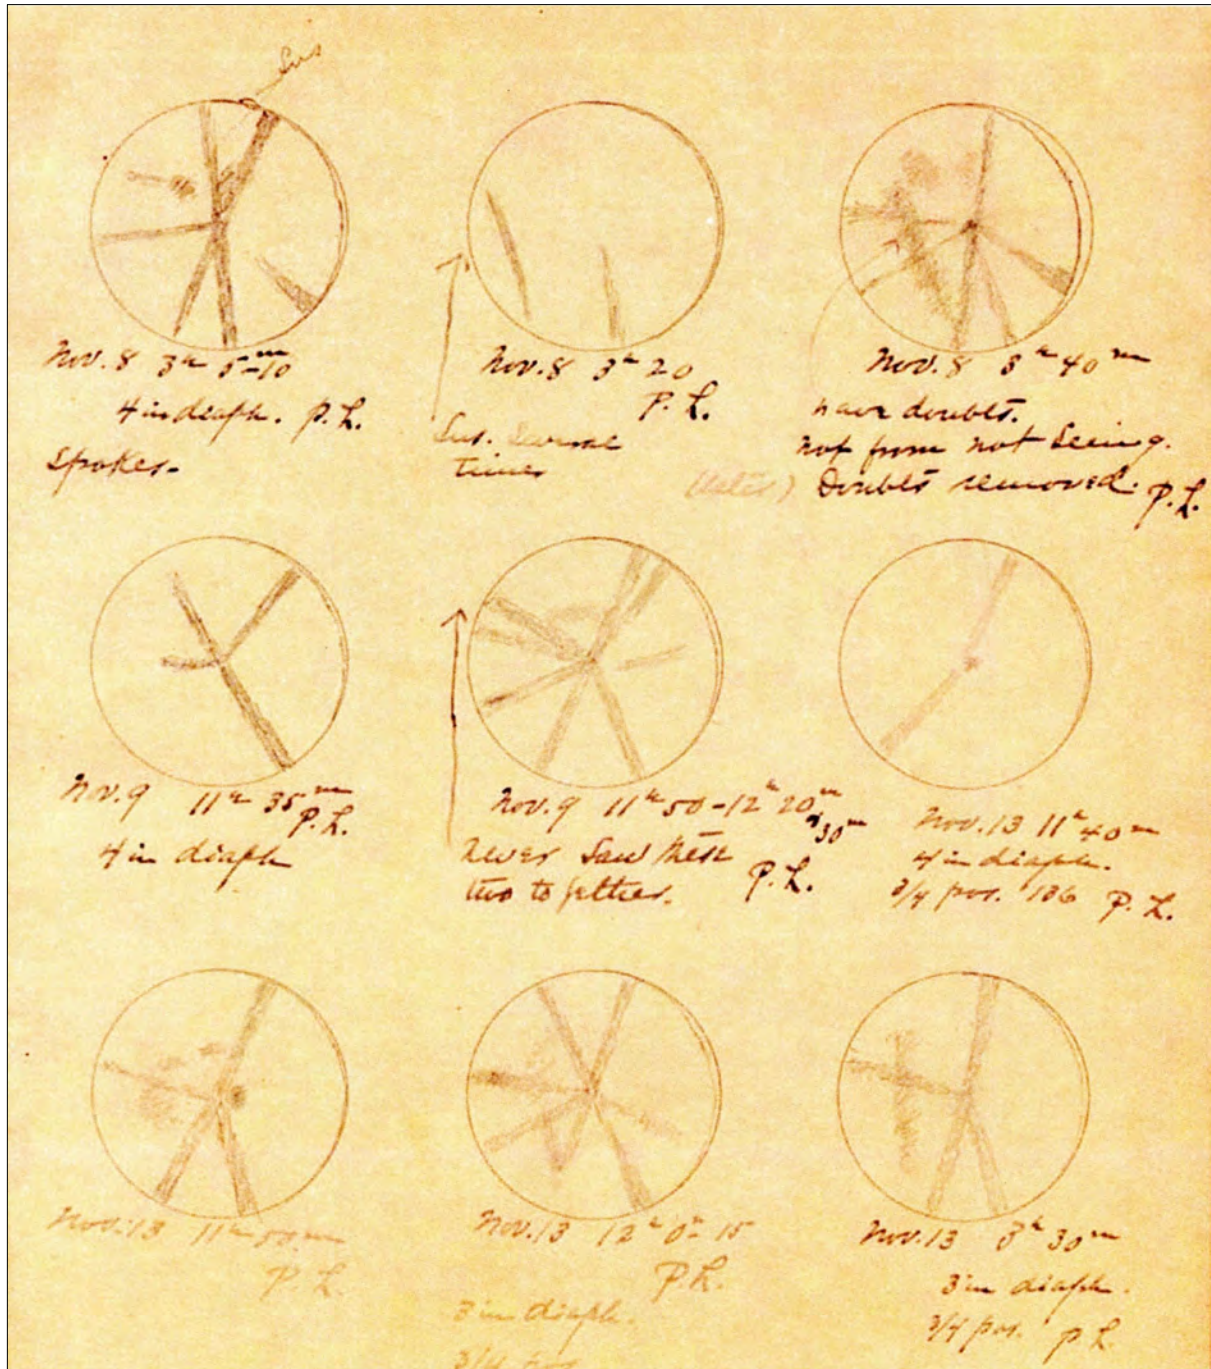 Sus
Nov. 8 3h 5-10m
4 in diaph. P. L.
Spokes-
Nov. 8 3h 20
P. L.
Sus. Several
times
Nov. 8 3h 40m
have doubts.
not from not seeing.
(later) Doubts removed. P. L.
Nov. 9 11h 35m
P. L.
4 in diaph
Nov. 9 11h 50-12h 20m
30m
never saw these
two together. P. L.
Nov. 13 11h 40m
4 in diaph.
3/4 pos. 136 P. L.
Nov. 13 11h 50m
P. L.
Nov. 13 12h 0-15
P. L.
3 in diaph.
3/4 pos
Nov. 13 3h 30m
3 in diaph.
3/4 pos. P. L.